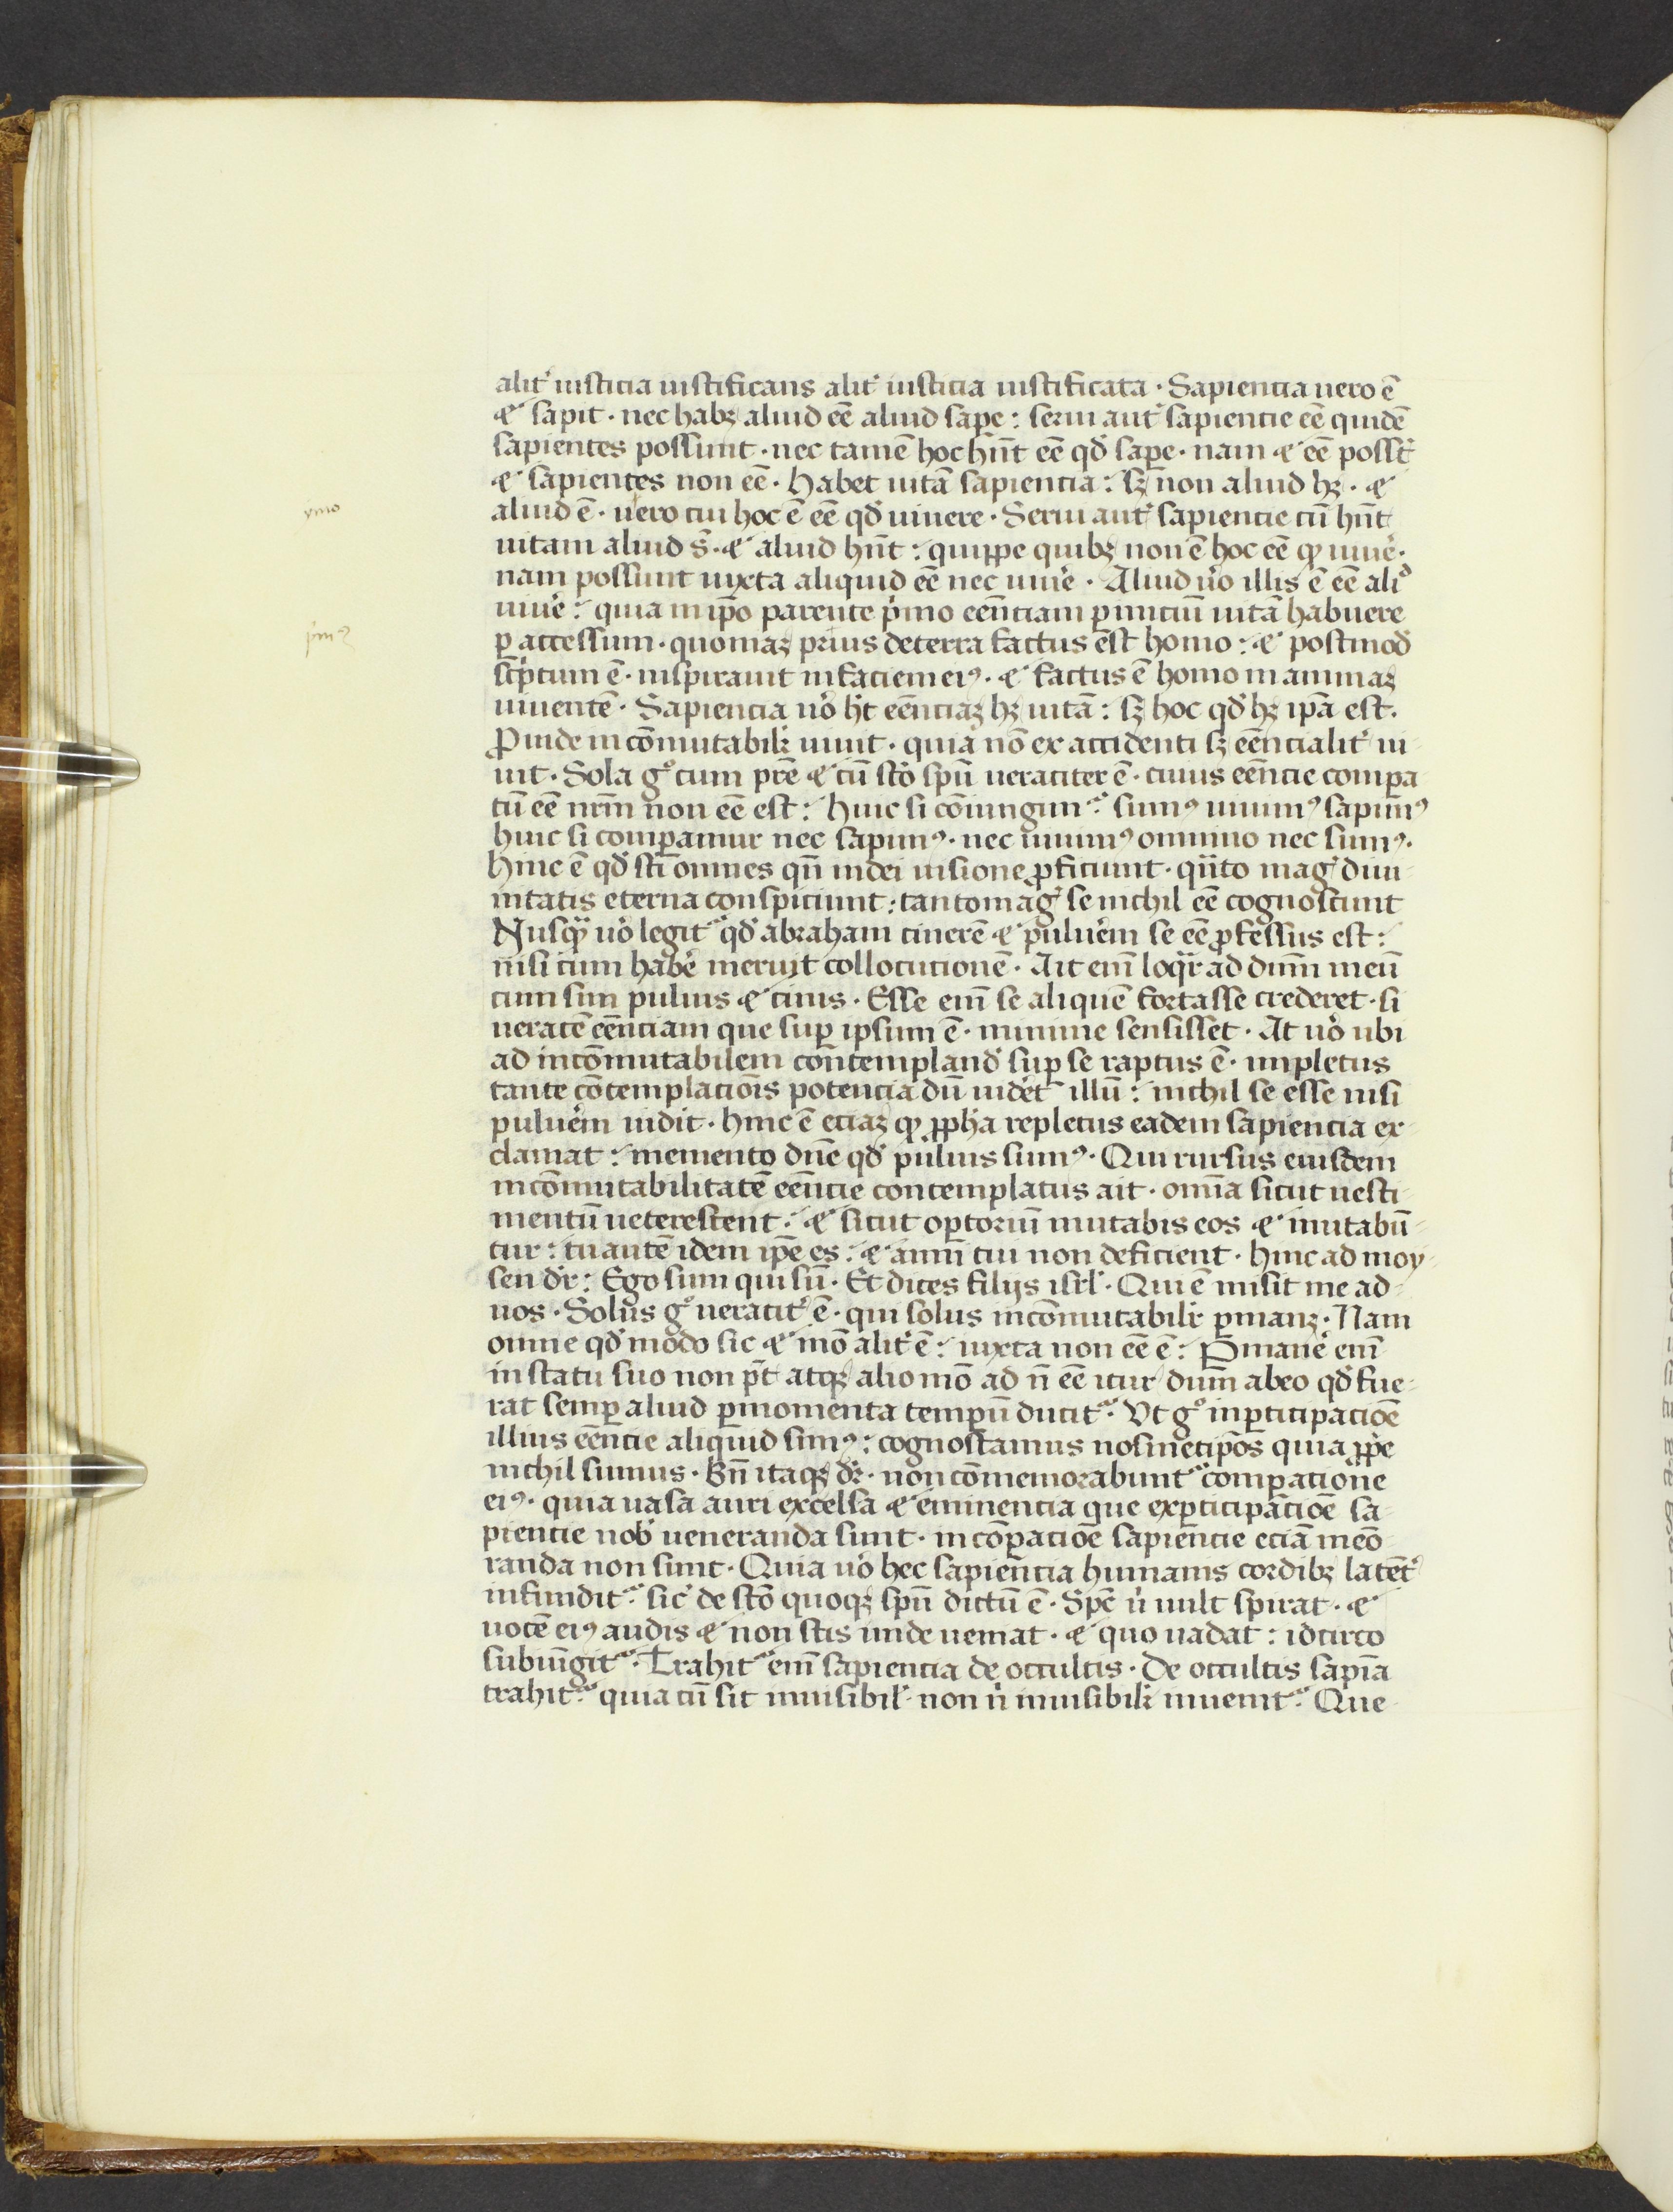 alit᷑ iusticia iustificans alit᷑ iusticia iustificata · Sapiencia uero ē
⁊ sapit · nec habꝫ aliud eē aliud saꝑe : serui aut᷑ sapiencie eē quidē
sapientes possunt · nec tamē hoc hn̄t eē qd᷑ saꝑe · nam ⁊ eē posst᷑
⁊ sapientes non eē · Habet uitā sapiencia : sꝫ non aliud hꝫ · ⁊
ymo
aliud ē · uero cui hoc ē eē qd᷑ uiuere · Serui aut᷑ sapiencie cū hn̄t
uitam aliud s̄ · ⁊ aliud hn̄t : quippe quibꝫ non ē hoc eē qͦ uiue᷑ ·
nam possunt iuxta aliquid eē nec uiue᷑ · Aliud u᷑o illis ē eē aliͦ
uiue᷑ : quia in ip̄o parente p᷑mo eēnciam ꝑ iniciū uitā habuere
ꝑ accessum · quoniaꝫ prius deterra factus est homo : ⁊ postmod᷑
sc̄ptum ē · inspirauit infaciem eiꝰ · ⁊ factus ē homo in animaꝫ
uiuentē · Sapiencia uo᷑ h᷑t eēnciaꝫ hꝫ uitā : sꝫ hoc qd᷑ hꝫ ip̄a est.
Ꝓinde incōmutabilr᷑ uiuit · quia nō ex accidenti sꝫ eēncialit᷑ ui-
uit · Sola gͦ cum pr̄e ⁊ cū sc̄o spū ueraciter ē · cuius eēncie comꝑa-
tū eē nr̄m non eē est : huic si cōiungimᷓ sumꝰ uiuimꝰ sapimꝰ
huic si comꝑamur nec sapimꝰ · nec uiuimꝰ omnino nec sumꝰ ·
hinc ē qd᷑ sc̄i omnes qn̄ indei uisione ꝓficiunt · qn̄to mag᷑ diui-
nitatis eterna conspiciunt : tantomag᷑ se nichil eē cognoscunt
Nusqͣ uo᷑ legitᷓ qd᷑ abraham cinerē ⁊ puluēm se eē ꝓfessus est :
nisi cum habe᷑ meruit collocucionē · Ait eni᷑ loqͣr ad dn̄m meū
cum sim puluis ⁊ cinis · Esse eni᷑ se aliquē fortasse crederet · si
ueracē eēnciam que suꝑ ipsum ē · minime sensisset · At uo᷑ ubi
ad incōmutabilem contempland᷑ suꝑ se raptus ē · impletus
tante cōtemplaciōis potencia dū uide᷑t illū : nichil se esse nisi
puluēm uidit · hinc ē eciaꝫ qͦ ꝓpha repletus eadem sapiencia ex-
clamat : memento dn̄e qd᷑ puluis sumꝰ · Qui rursus eiusdem
incōmutabilitatē eēncie contemplatus ait · omīa sicut uesti-
mentū ueterescent · ⁊ sicut oꝑtoriū mutabis eos ⁊ mutabū-
tur : tu autē idem ip̄e es : ⁊ anni tui non deficient · hinc ad moy-
sen dr᷑ : Ego sum qui sū · Et dices filijs isrl᷑ · Qui ē misit me ad
uos · Solus gͦ ueracit᷑ ē · qui solus incōmutabilr᷑ ꝑmanꝫ · Nam
omne qd᷑ modo sic ⁊ mō alit᷑ ē : iuxta non eē ē : Ꝑmane᷑ eni᷑
in statu suo non pt᷑ atqꝫ alio mō ad n̄ eē itur dum abeo qd᷑ fue-
rat semꝑ aliud ꝑmomenta tempū ducitᷓ · Vt gͦ inꝑticipaciōe
illius eēncie aliquid simꝰ : cognoscamus nosmetip̄os quia ꝓpe
nichil sumus · Bn̄ itaqꝫ dr᷑ · non cōmemorabuntᷓ comꝑatione
eiꝰ · quia uasa auri excelsa ⁊ eminencia que exꝑticipaciōe sa-
piencie nob᷑ ueneranda sunt · in cōꝑaciōe sapiencie eciā meō-
randa non sunt · Quia uo᷑ hec sapiencia humanis cordibꝫ latēt᷑
infunditᷓ · sic᷑ de sc̄o quoqꝫ spū dictū ē · Spc̄ u᷑ uult spirat · ⁊
uocē eiꝰ audis ⁊ non scis unde ueniat · ⁊ quo uadat : idcirco
subiu᷑gitᷓ · Trahitᷓ eni᷑ sapiencia de occultis · De occultis sapīa
trahitᷓ quia cū sit inuisibil᷑ · non n᷑ inuisibilr᷑ inuenitᷓ · Que